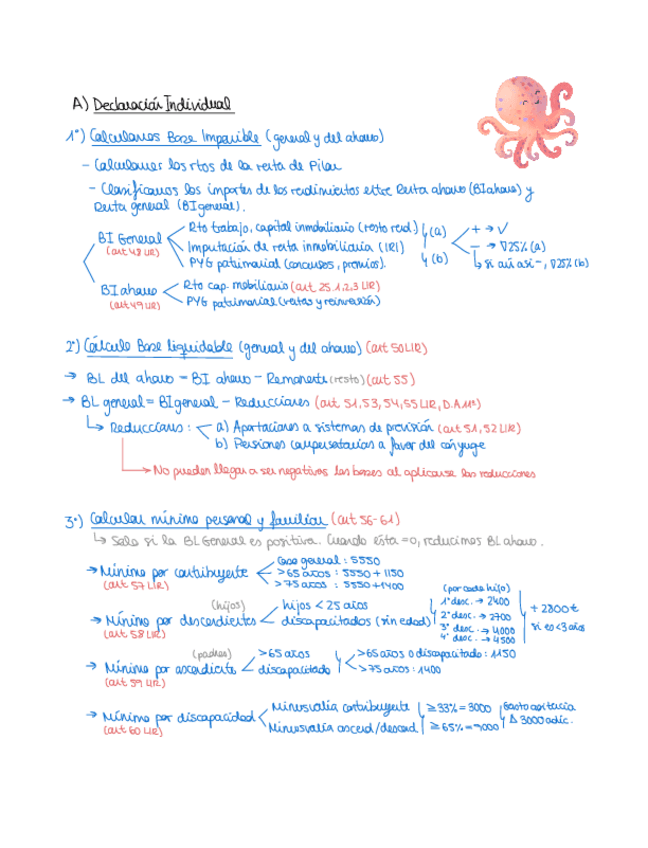 A) Declaración Individual
1º) Calculamos Base Imponible (general y del ahorro)
- Calculamos los rtos de la renta de Pilar
- Clasificamos los importes de los rendimientos entre Renta ahorro (BI ahorro) y
Renta general (BI general).
BI General (art 48 LIR)
Rto trabajo, capital inmobiliario (resto rend.) (a)
Imputación de renta inmobiliaria (IRI)
PYG patrimonial (concursos, premios). (b)
+ → ✓
- → ∇25% (a)
↳ si aún así -, ∇25% (b)
BI ahorro (art 49 LIR)
Rto cap. mobiliario (art 25.1,2,3 LIR)
PYG patrimonial (ventas y reinversión)
2º) Cálculo Base liquidable (general y del ahorro) (art 50 LIR)
→ BL del ahorro = BI ahorro - Remanente (resto) (art 55)
→ BL general = BI general - Reducciones (art 51, 53, 54, 55 LIR, D.A 11ª)
↳ Reducciones: a) Aportaciones a sistemas de previsión (art 51, 52 LIR)
b) Pensiones compensatorias a favor del cónyuge
→ No pueden llegar a ser negativas las bases al aplicarse las reducciones
3º) Calcular mínimo personal y familiar (art 56-61)
↳ Solo si la BL General es positiva. Cuando esta =0, reducimos BL ahorro.
→ Mínimo por contribuyente (art 57 LIR)
Caso general: 5550
>65 años: 5550 + 1150
>75 años: 5550 + 1400
(hijos)
→ Mínimo por descendientes (art 58 LIR)
hijos < 25 años
discapacitados (sin edad)
(por cada hijo)
1º desc. → 2400
2º desc. → 2700
3º desc. → 4000
4º desc. → 4500
+ 2800€
si es <3 años
(padres)
→ Mínimo por ascendiente (art 59 LIR)
>65 años
discapacitado
>65 años o discapacitado: 1150
>75 años: 1400
→ Mínimo por discapacidad (art 60 LIR)
Minusvalía contribuyente
Minusvalía ascend/descend
≥33% = 3000
≥65% = 9000
Gasto asistencia
Δ 3000 adic.